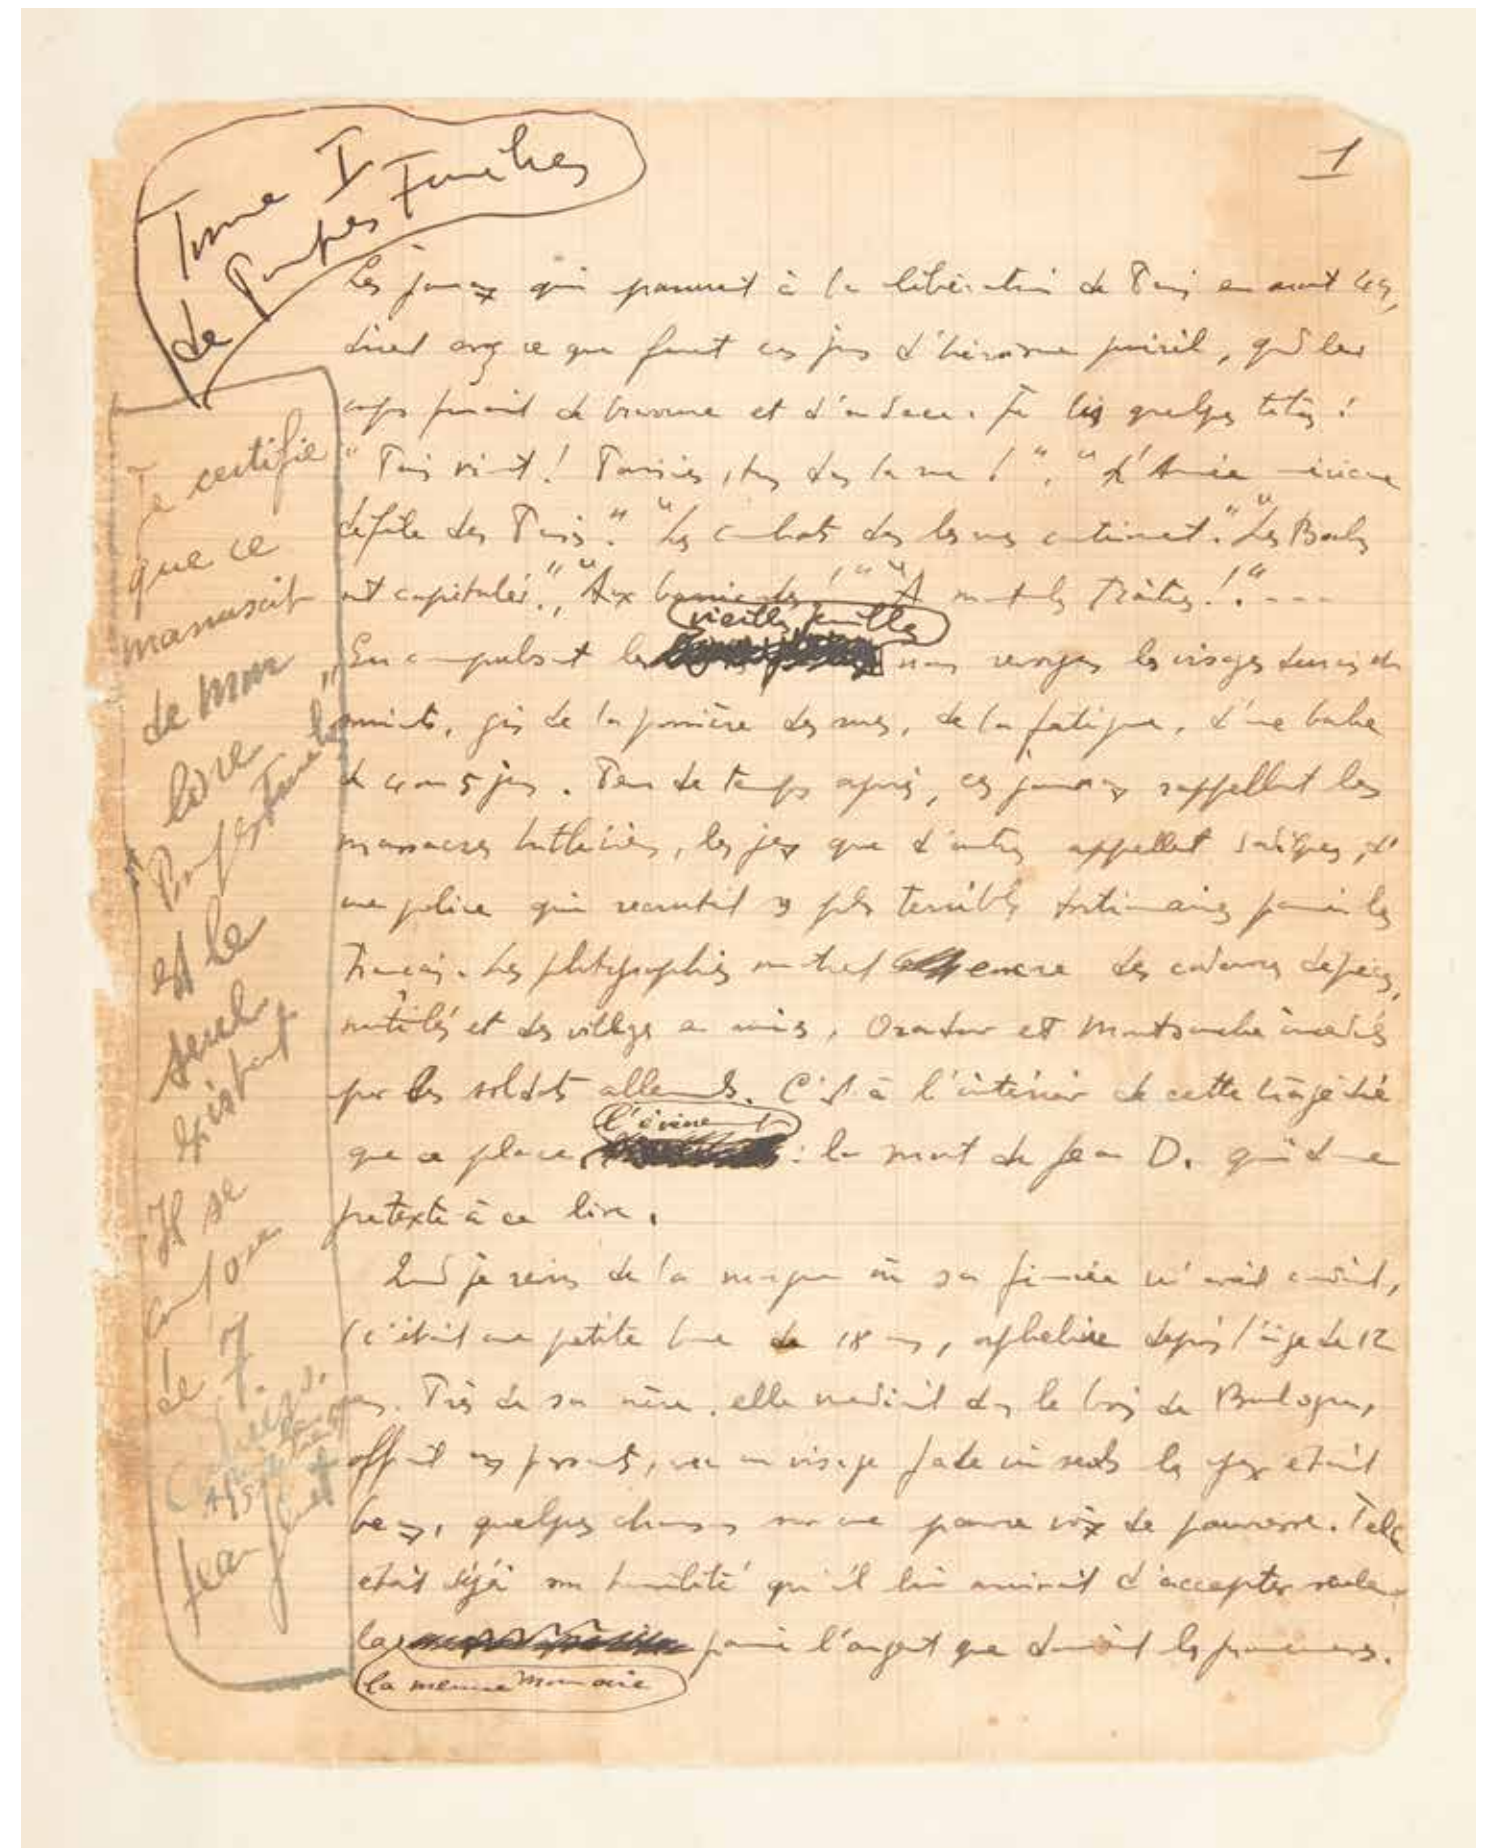 Tome I
de Pompes Funèbres
1
Les journaux qui parurent à la libération de Paris en août 44,
disent assez ce que furent ces jours d'héroïsme puéril, quand le
corps fumait de bravoure et d'audace. Je lis quelques titres :
"Paris vit ! Parisiens, tous dans la rue !". "L'Armée américaine
défile dans Paris." "Les combats dans les rues continuent." "Les Boches
ont capitulé." "Aux barricades !" "A mort les Traîtres !". ---
En compulsant les vieilles feuilles nous revoyons les visages durcis et
souriants, gris de la poussière des rues, de la fatigue, d'une barbe
de 4 ou 5 jours. Peu de temps après, ces journaux rappellent les
massacres hitlériens, les jeux que d'autres appellent sadiques, d'
une police qui recrutait ses plus terribles tortionnaires parmi les
Français. Les photographies montrent encore des cadavres dépecés,
mutilés et des villages en ruines, Oradour et Montsauche incendiés
par les soldats allemands. C'est à l'intérieur de cette tragédie
que se place l'événement : la mort de Jean D. qui donne
prétexte à ce livre.
Quand je revins de la morgue où sa fiancée m'avait conduit,
(c'était une petite bonne de 18 ans, orpheline depuis l'âge de 12
ans. Près de sa mère, elle mendiait dans le bois de Boulogne,
offrant aux passants, avec un visage fade où seuls les yeux étaient
beaux, quelques chansons sur une pauvre voix de pauvresse. Telle
était déjà son humilité qu'il lui arrivait d'accepter seule-
la menue monnaie parmi l'argent que donnaient les promeneurs.
Je certifie
que ce
manuscrit
de mon
livre
"Pompes Funèbres"
est le
seul
existant
Il se
compose
de 7.
Cahiers.
Jean Genet